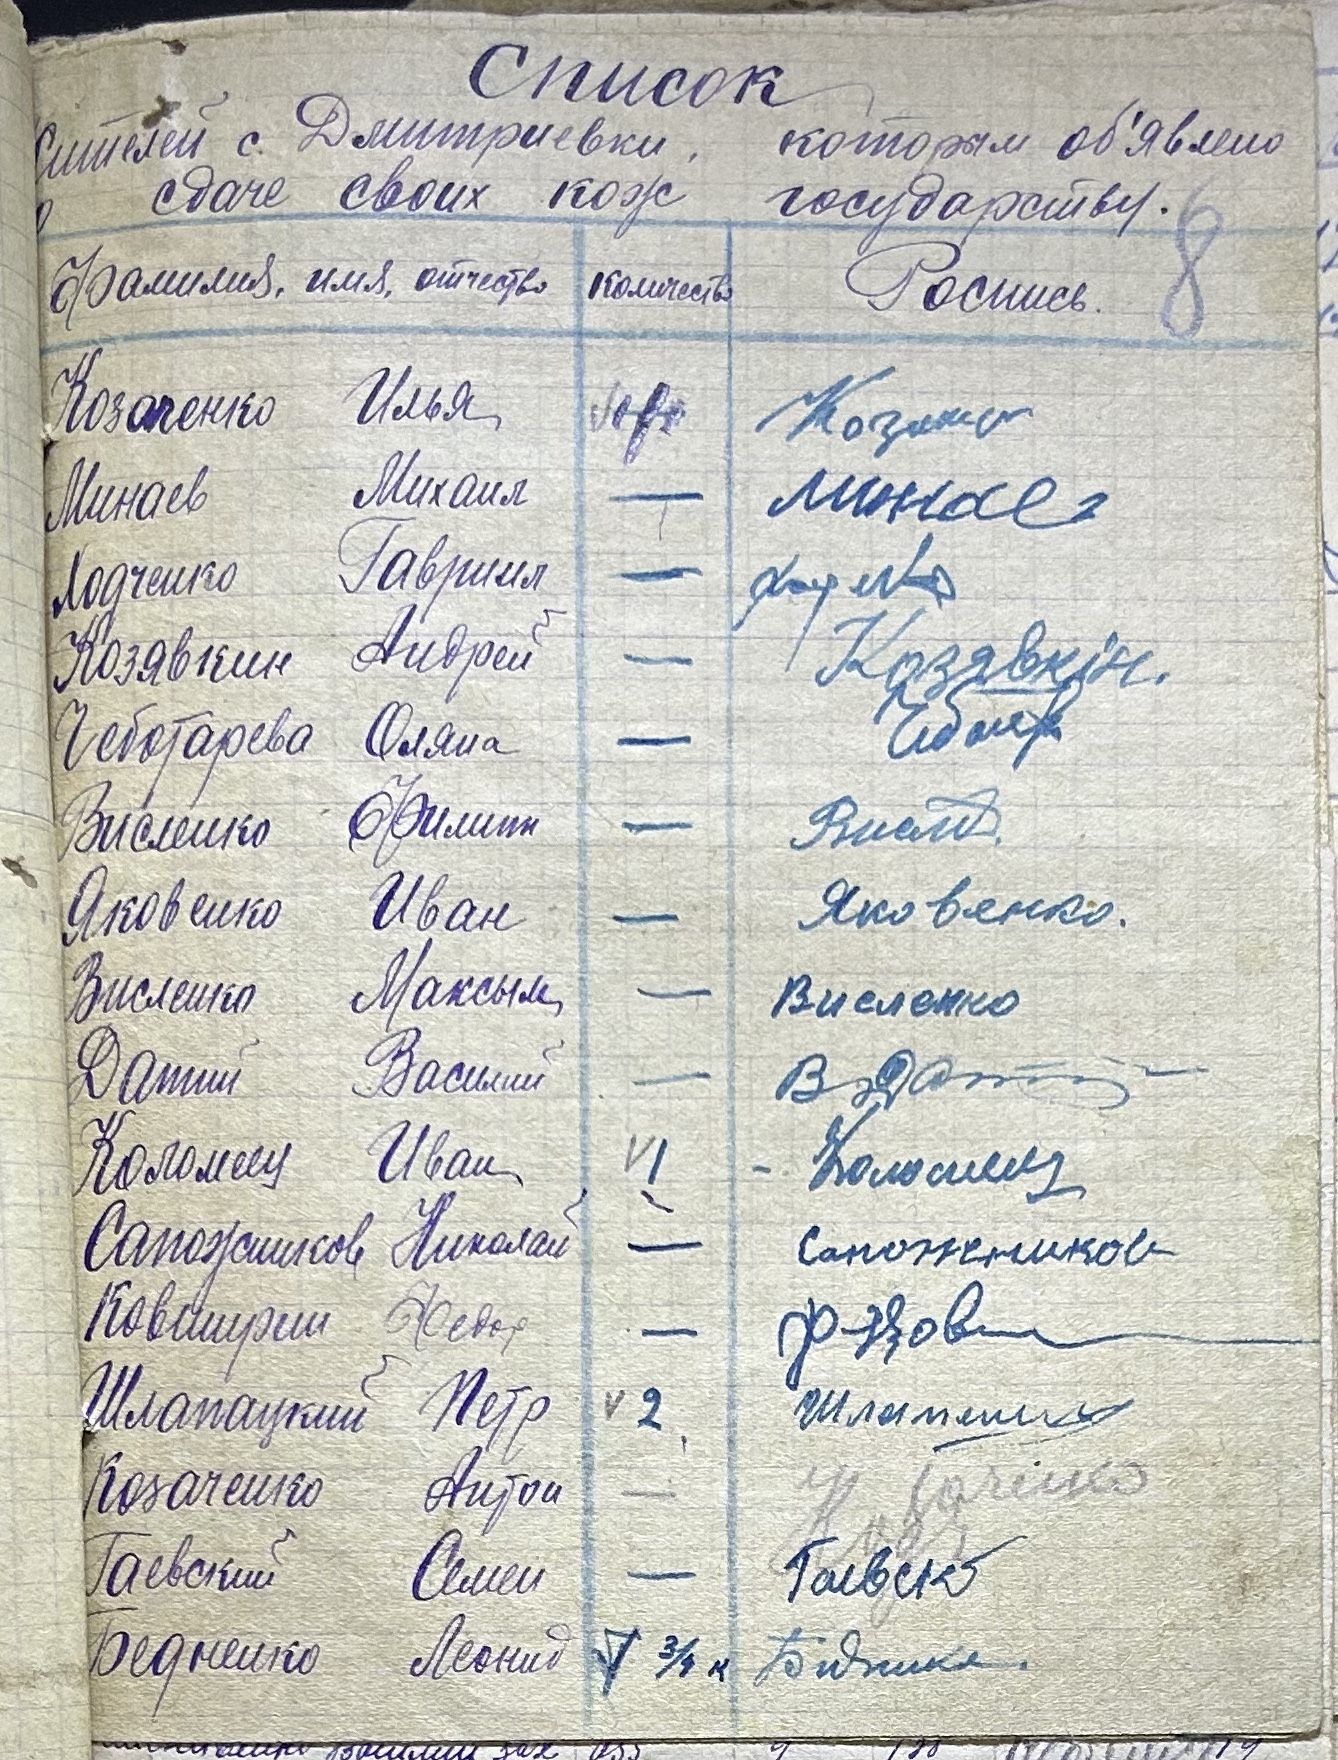 Список
жителей с. Дмитриевки, которым об'явлено
о сдаче своих кож государству.
8
Фамилия, имя, отчество количество Роспись.
Козаченко Илья
Минаев Михаил — Минаев
Ходченко Гавриил —
Козявкин Андрей — Козявкін.
Чеботарева Оляна —
Висленко Филипп —
Яковенко Иван — Яковенко.
Висленко Максым — Висленко
Датий Василий —
Коломиец Иван V 1 - Коломиец
Сапожников Николай — Сапожников
Ковшурин Федор —
Шлапацкий Петр v 2
Козаченко Антон —
Гаевский Семен — Гаевск
Бедненко Леонид V 3/4 к